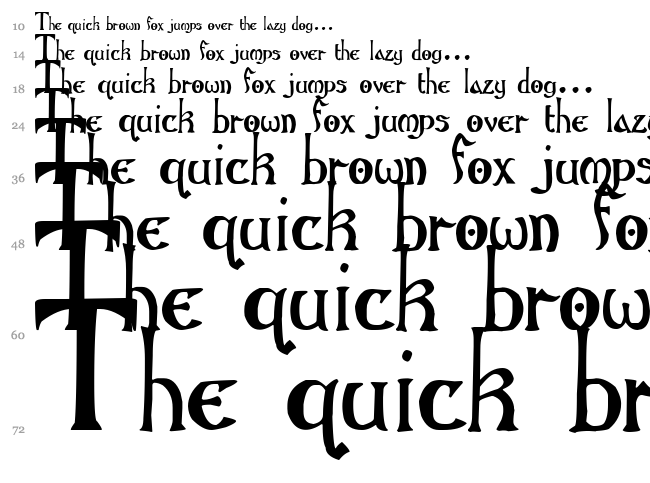 10 The quick brown fox jumps over the lazy dog...
14 The quick brown fox jumps over the lazy dog...
18 The quick brown fox jumps over the lazy dog...
24 The quick brown fox jumps over the lazy
36 The quick brown fox jumps
48 The quick brown fo
60 The quick brow
72 The quick br